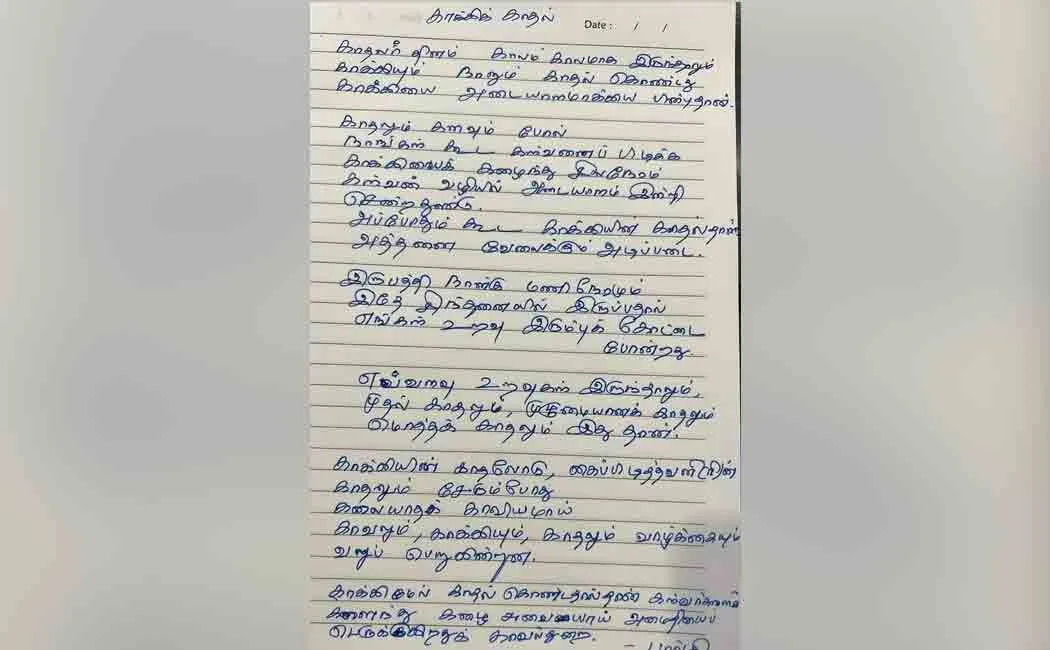 காக்கிக் காதல்
Date : / /
காதலர் தினம் காலம் காலமாக இருந்தாலும்
காக்கியும் நானும் காதல் கொண்டது
காக்கியை அடையாளமாக்கிய பின்புதான்.
காதலும் களவும் போல்
நாங்கள் கூட கள்வனைப் பிடிக்க
காக்கியைக் களைந்து சிலநேரம்
கள்வன் வழியில் அடையாளம் இன்றி
சென்றதுண்டு.
அப்போதும் கூட காக்கியின் காதல்தான்
அத்தனை வேலைக்கும் அடிப்படை.
இருபத்தி நான்கு மணிநேரமும்
இதே சிந்தனையில் இருப்பதால்
எங்கள் உறவு இரும்புக் கோட்டை
போன்றது.
எவ்வளவு உறவுகள் இருந்தாலும்,
முதல் காதலும், முழுமையான காதலும்
மொத்தக் காதலும் இது தான்.
காக்கியின் காதலோடு, கைப்பிடித்தவளி(ரி)ன்
காதலும் சேரும்போது
கலையாத காவியமாய்
காவலும், காக்கியும், காதலும் வாழ்க்கையும்
வலுப் பெறுகின்றன.
காக்கிமேல் காதல் கொண்டால்தான்
களைந்து அமைதியைப்
காவல்துறை.